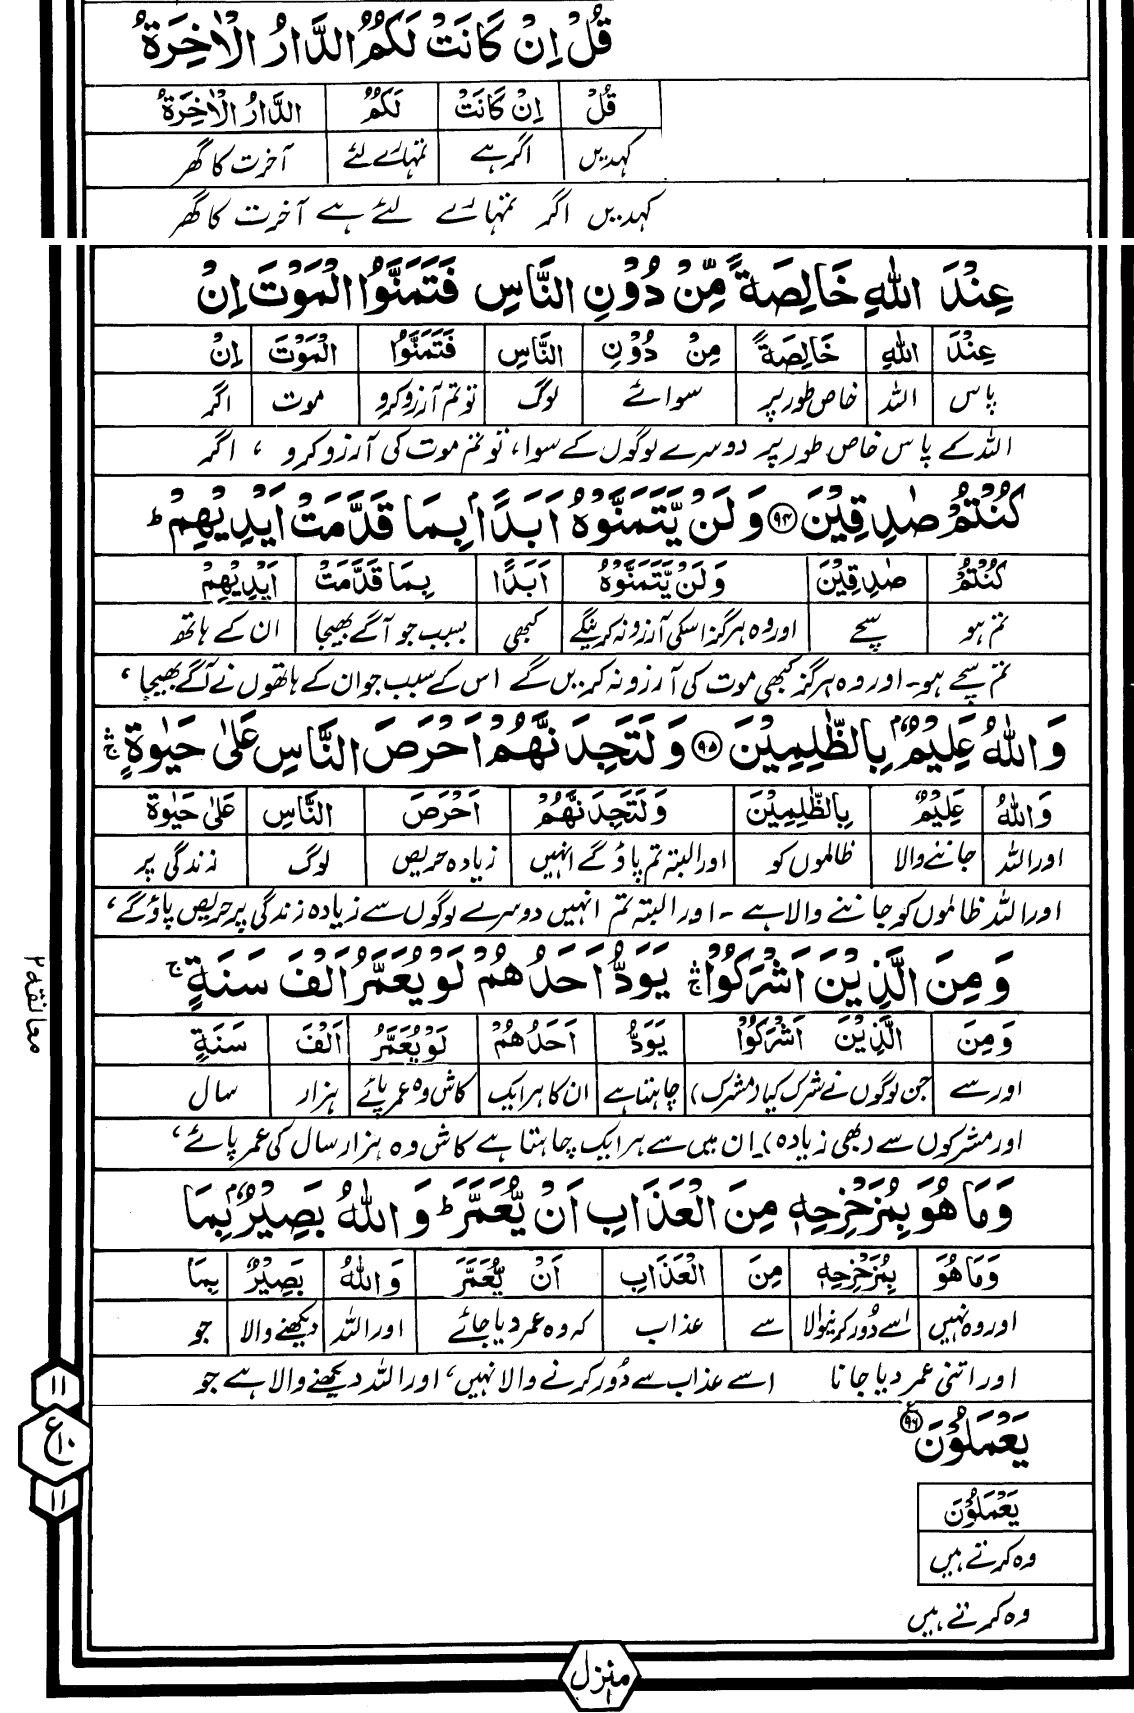 قُلْ اِنْ كَانَتْ لَكُمُ الدَّارُ الْاٰخِرَةُ
قُلْ اِنْ كَانَتْ لَكُمُ الدَّارُ الْاٰخِرَةُ
کہدیں اگر ہے تمہارے لئے آخرت کا گھر
کہدیں اگر تمہارے لئے ہے آخرت کا گھر
عِنْدَ اللّٰهِ خَالِصَةً مِّنْ دُوْنِ النَّاسِ فَتَمَنَّوُا الْمَوْتَ اِنْ
عِنْدَ اللّٰهِ خَالِصَةً مِنْ دُوْنِ النَّاسِ فَتَمَنَّوُا الْمَوْتَ اِنْ
پاس اللہ خاص طور پر سوائے لوگ تو تم آرزو کرو موت اگر
اللہ کے پاس خاص طور پر دوسرے لوگوں کے سوا، تو تم موت کی آرزو کرو ، اگر
كُنْتُمْ صٰدِقِيْنَ ۹۴ وَلَنْ يَّتَمَنَّوْهُ اَبَدًۢا بِمَا قَدَّمَتْ اَيْدِيْهِمْ ط
كُنْتُمْ صٰدِقِيْنَ وَلَنْ يَّتَمَنَّوْهُ اَبَدًا بِمَا قَدَّمَتْ اَيْدِيْهِمْ
تم ہو سچے اور وہ ہرگز اسکی آرزو نہ کرینگے کبھی بسبب جو آگے بھیجا ان کے ہاتھ
تم سچے ہو۔ اور وہ ہرگز کبھی موت کی آرزو نہ کریں گے اس کے سبب جو ان کے ہاتھوں نے آگے بھیجا ،
وَاللّٰهُ عَلِيْمٌۢ بِالظّٰلِمِيْنَ ۹۵ وَلَتَجِدَنَّهُمْ اَحْرَصَ النَّاسِ عَلٰى حَيٰوةٍ ۛۚ
وَاللّٰهُ عَلِيْمٌ بِالظّٰلِمِيْنَ وَلَتَجِدَنَّهُمْ اَحْرَصَ النَّاسِ عَلٰى حَيٰوةٍ
اور اللہ جاننے والا ظالموں کو اور البتہ تم پاؤ گے انہیں زیادہ حریص لوگ زندگی پر
اور اللہ ظالموں کو جاننے والا ہے ۔ اور البتہ تم انہیں دوسرے لوگوں سے زیادہ زندگی پر حریص پاؤ گے ،
وَمِنَ الَّذِيْنَ اَشْرَكُوْا ۛۚ يَوَدُّ اَحَدُهُمْ لَوْ يُعَمَّرُ اَلْفَ سَنَةٍ ج
وَمِنَ الَّذِيْنَ اَشْرَكُوْا يَوَدُّ اَحَدُهُمْ لَوْ يُعَمَّرُ اَلْفَ سَنَةٍ
اور سے جن لوگوں نے شرک کیا (مشرک) چاہتا ہے ان کا ہر ایک کاش وہ عمر پائے ہزار سال
اور مشرکوں سے (بھی زیادہ) ان میں سے ہر ایک چاہتا ہے کاش وہ ہزار سال کی عمر پائے ،
معانقہ ۲
وَمَا هُوَ بِمُزَحْزِحِهٖ مِنَ الْعَذَابِ اَنْ يُّعَمَّرَ ط وَاللّٰهُ بَصِيْرٌۢ بِمَا
وَمَا هُوَ بِمُزَحْزِحِهٖ مِنَ الْعَذَابِ اَنْ يُّعَمَّرَ وَاللّٰهُ بَصِيْرٌ بِمَا
اور وہ نہیں اسے دُور کرنیوالا سے عذاب کہ وہ عمر دیا جائے اور اللہ دیکھنے والا جو
اور اتنی عمر دیا جانا اسے عذاب سے دُور کرنے والا نہیں ، اور اللہ دیکھنے والا ہے جو
يَعْمَلُوْنَ ۹۶
۱۱
ع ۱۰
۱۱
يَعْمَلُوْنَ
وہ کرتے ہیں
وہ کرتے ہیں
منزل ۱